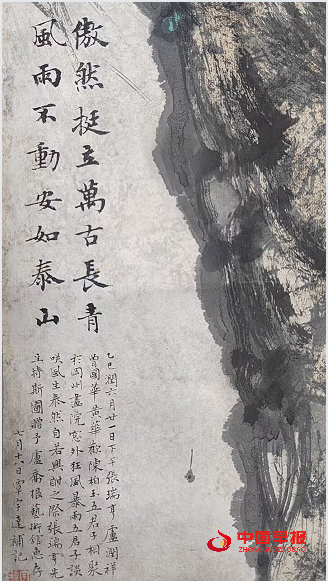 傲然挺立萬古長青
風雨不動安如泰山
乙巳閏六月廿一日下午張瑞亨盧潤祥
曾國華黃華歡陳柏玉五君子相聚
於岡州畫院窓外狂風暴雨五君子談
咲風生泰然自若興酣之際張瑞亨先
生持斯圖贈予盧喬根藝術館惠存
七月十六日 覃宇達補記
中國畫報
ZHONGGUOHUABAO